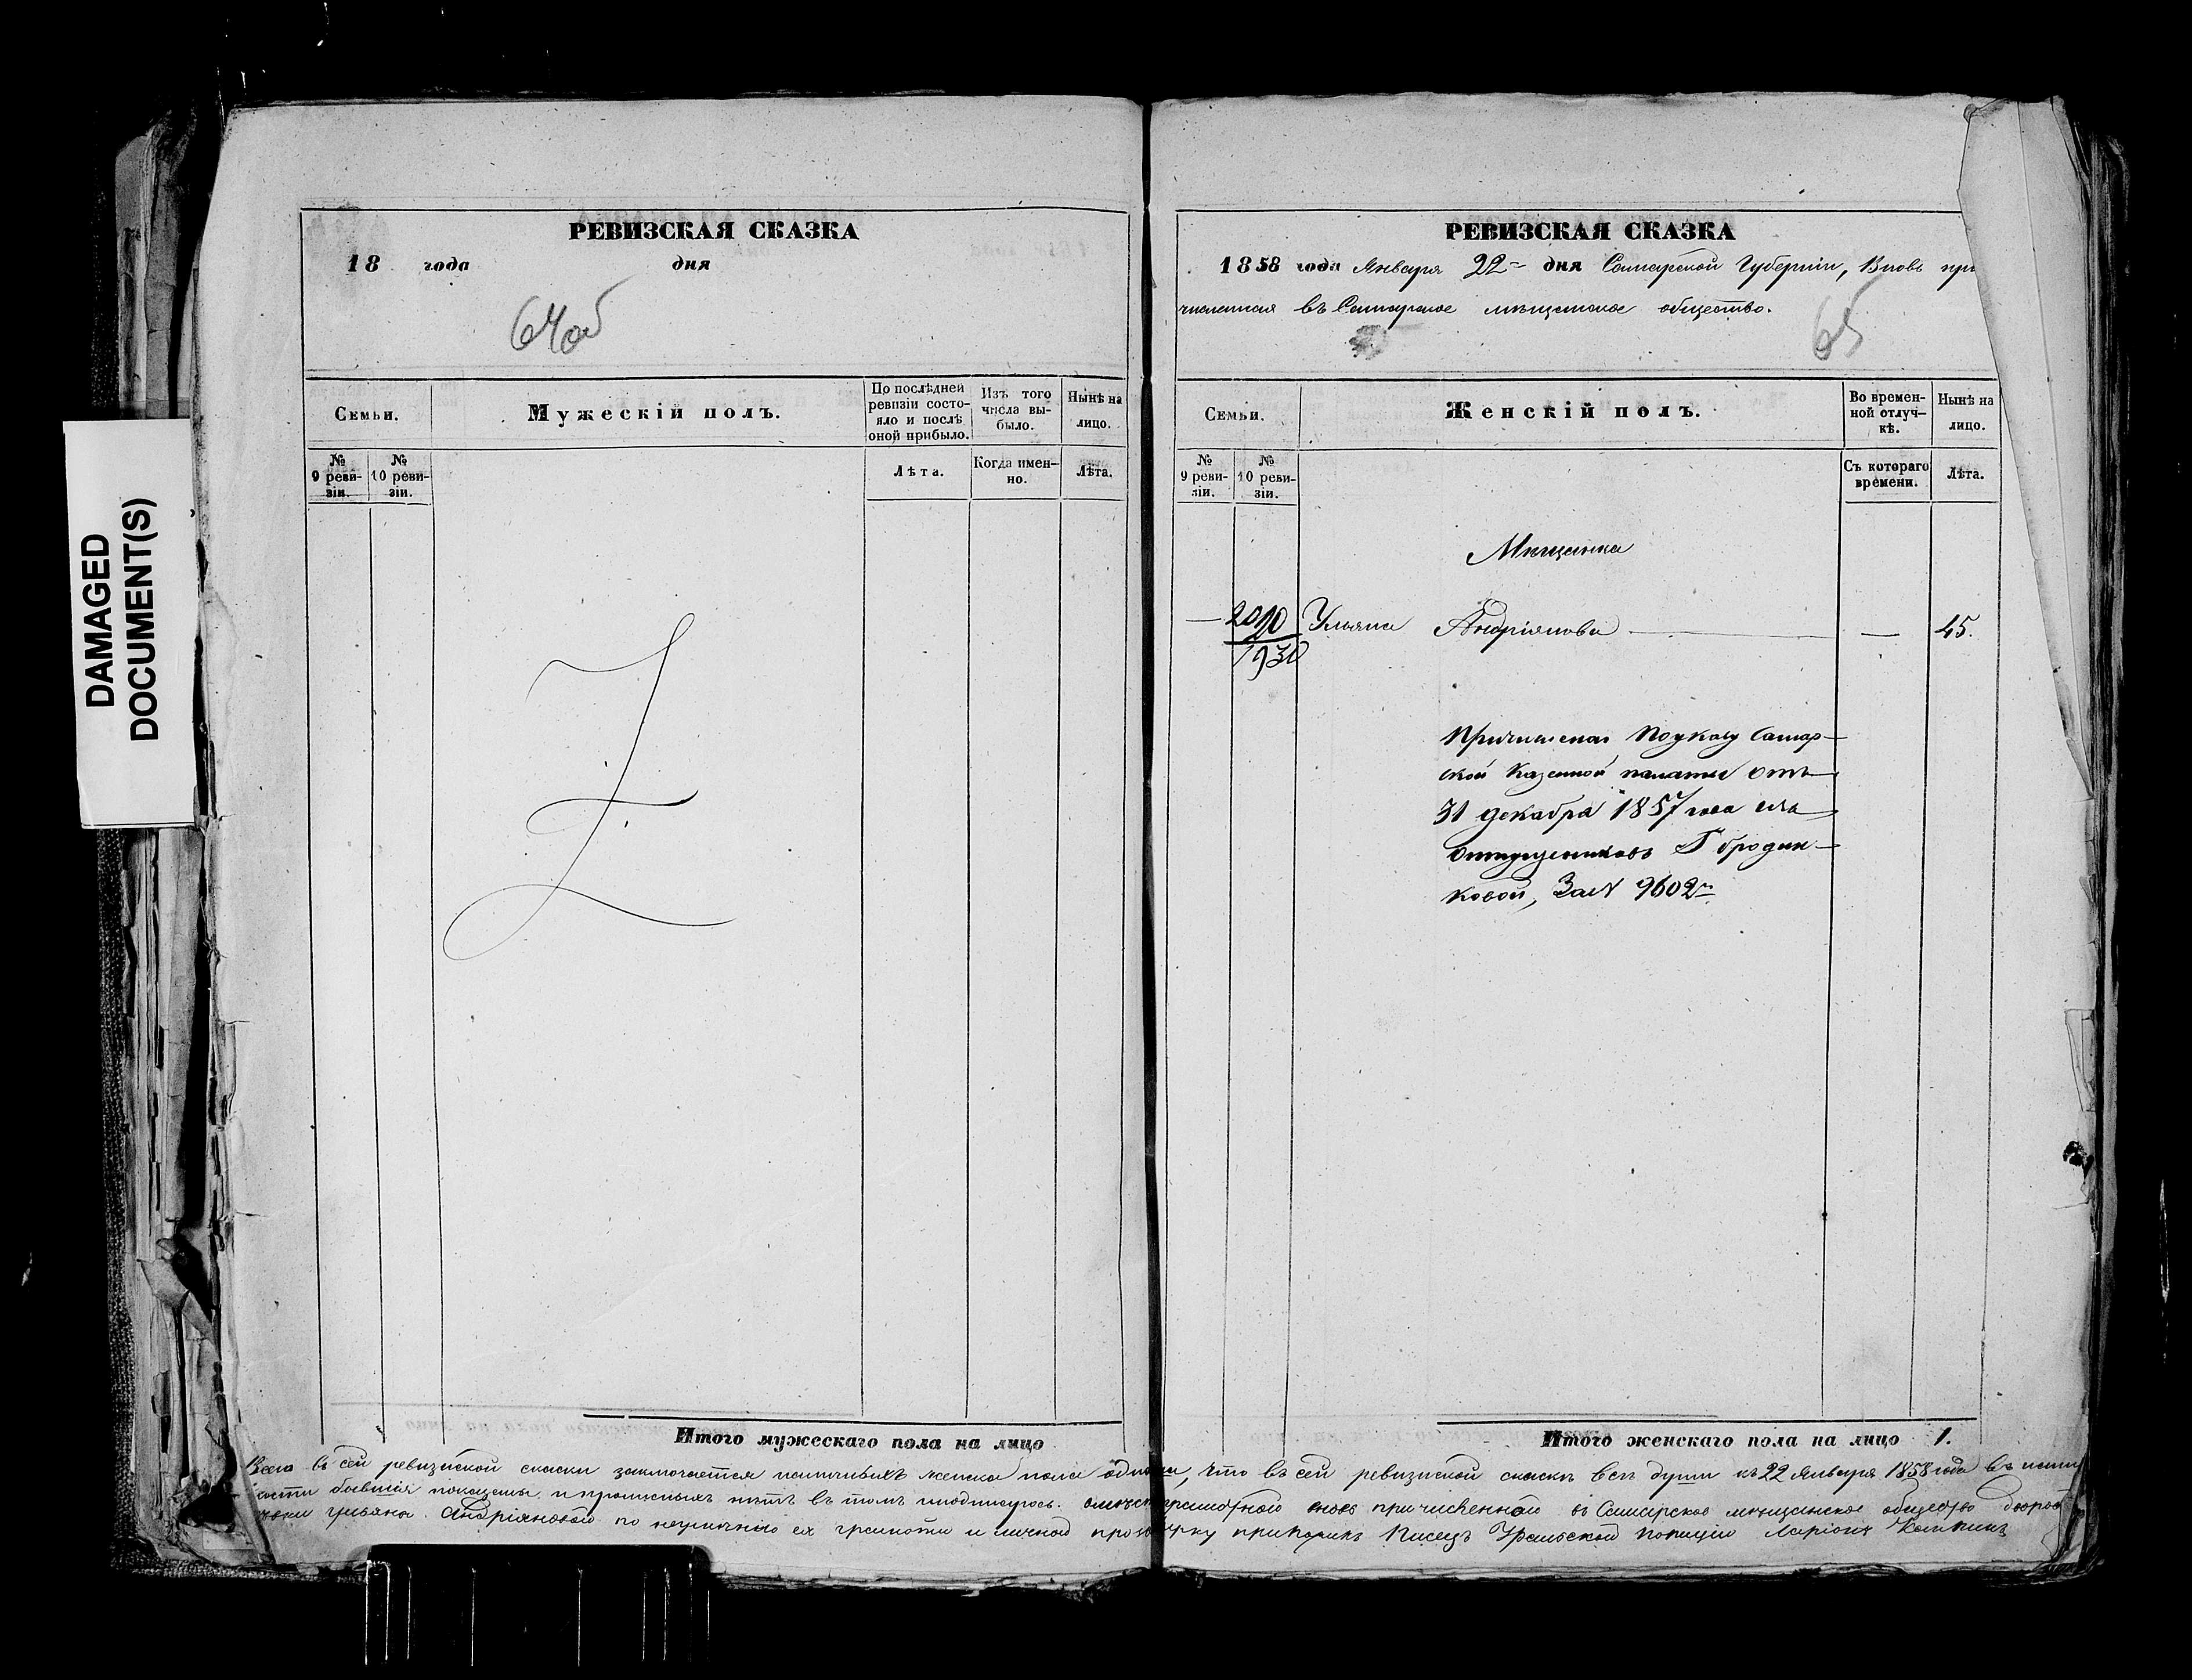 DAMAGED
DOCUMENT(S)
РЕВИЗСКАЯ СКАЗКА
18 года дня
64об
Семьи.
Мужескій полъ.
По послѣдней ревизіи состояло и послѣ оной прибыло.
Изъ того числа выбыло.
Нынѣ на лицо.
№ 9 ревизіи.
№ 10 ревизіи.
Лѣта.
Когда именно.
Лѣта.
Итого мужескаго пола на лицо
РЕВИЗСКАЯ СКАЗКА
1858 года Января 22 дня Самарской Губерніи, Вновь при
численная въ Самарское мѣщанское общество.
65
Семьи.
Женскій полъ.
Во временной отлучкѣ.
Нынѣ на лицо.
№ 9 ревизіи.
№ 10 ревизіи.
Съ котораго времени.
Лѣта.
Мѣщанка
— Ульяна Андріянова — — 45.
1930
Причислена По указу Самар-
ской Казенной палаты отъ
31 декабря 1857 года изъ
отпущенниковъ Г бродин-
ковой, За № 9602
Итого женскаго пола на лицо 1.
Всего въ сей ревизской сказки заключается наличныхъ женска пола одна, что въ сей ревизской сказкѣ всѣ души къ 22 Января 1858 года въ
бывшія показаны и прописныхъ нѣтъ въ томъ и подписуюсь. вновь причисленной въ Самарское мѣщанское общество
Ульяны Андріяновой по неумѣнію ея грамоти и личной Писецъ Уральской Полиціи Ларіонъ